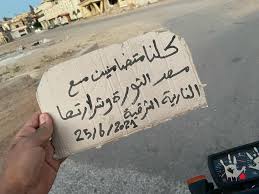 كلنا متضامنين مع
مهد الثورة وشرارتها
النارية الشرقية
25/6/2021